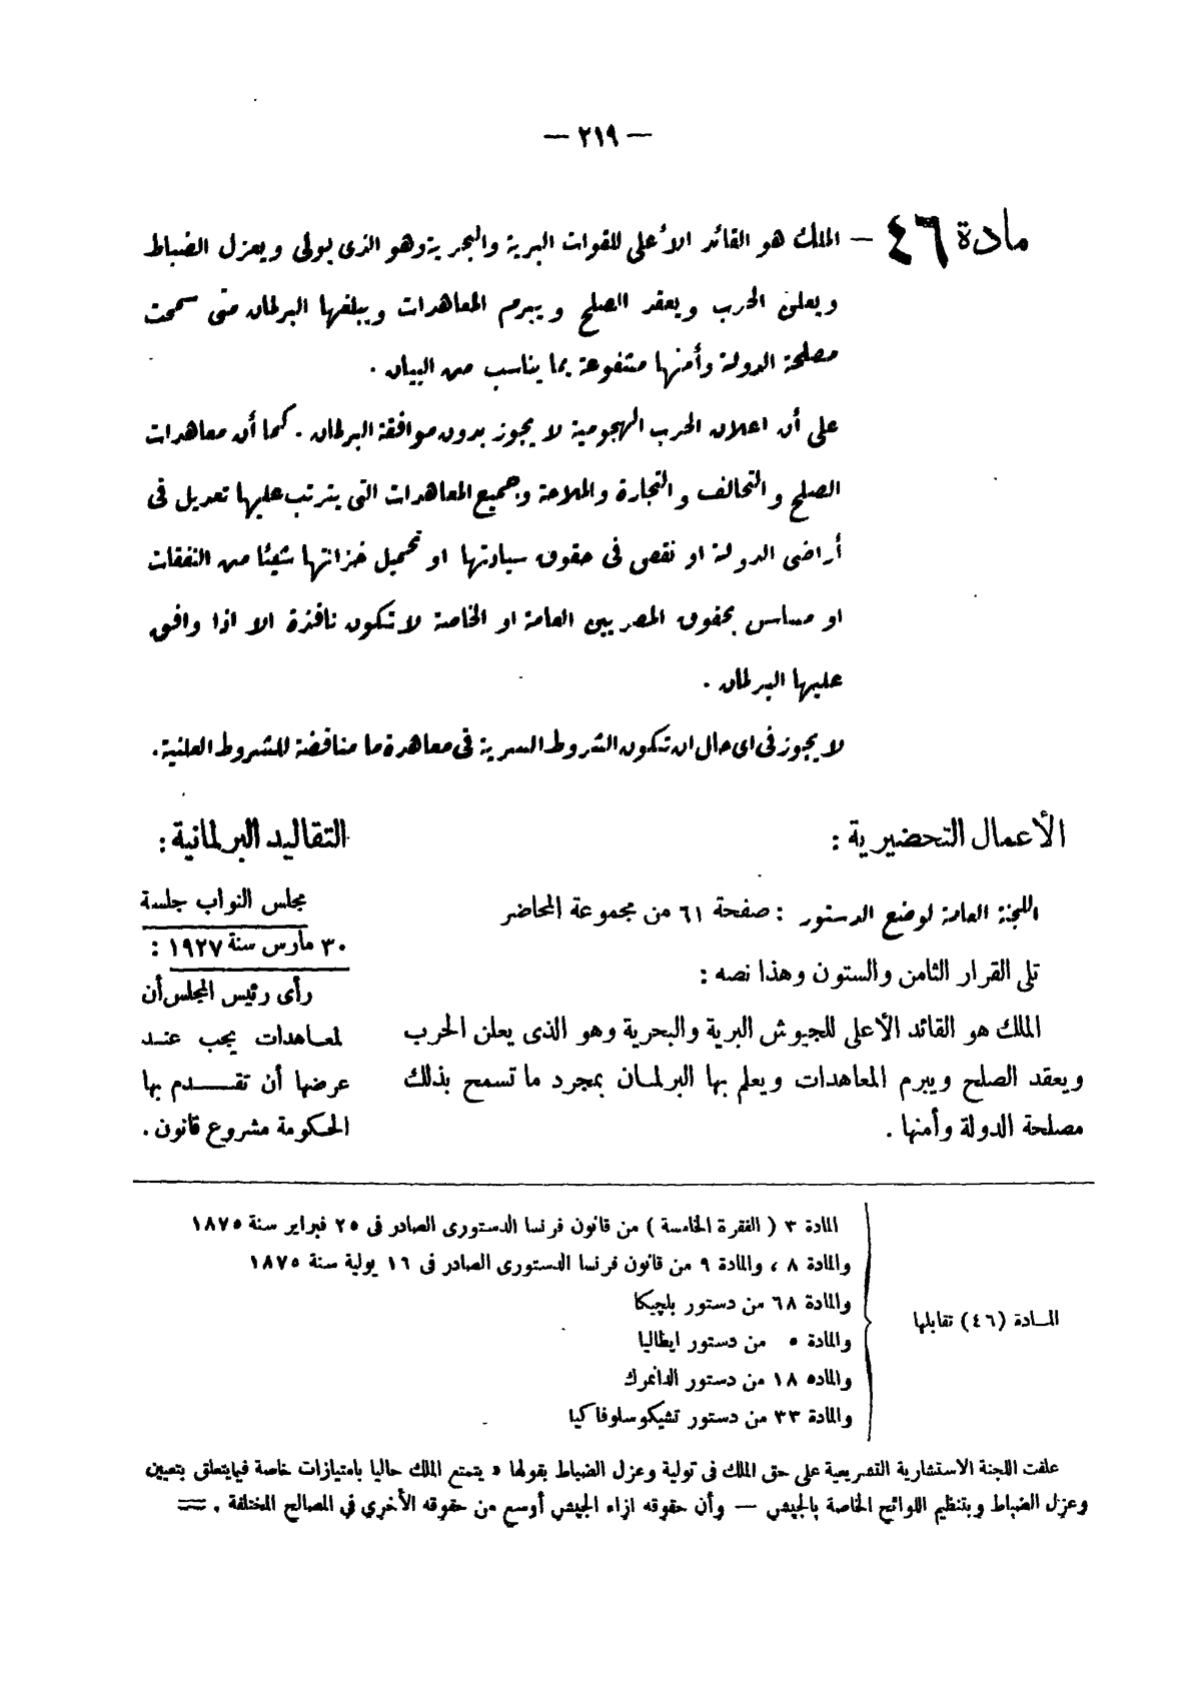 — ٢١٩ —
مادة ٤٦ — الملك هو القائد الأعلى للقوات البرية والبحرية وهو الذى يولى ويعزل الضباط
ويعلن الحرب ويعقد الصلح ويبرم المعاهدات ويبلغها البرلمان متى سمحت
مصلحة الدولة وأمنها مشفوعة بما يناسب من البيان .
على أن اعلان الحرب الهجومية لا يجوز بدون موافقة البرلمان . كما أن معاهدات
الصلح والتحالف والتجارة والملاحة وجميع المعاهدات التى يترتب عليها تعديل فى
أراضى الدولة او نقص فى حقوق سيادتها او تحميل خزانتها شيئا من النفقات
او مساس بحقوق المصريين العامة او الخاصة لا تكون نافذة الا اذا وافق
عليها البرلمان .
لا يجوز فى اى حال ان تكون الشروط السرية فى معاهدة ما مناقضة للشروط العلنية .
الأعمال التحضيرية :
اللجنة العامة لوضع الدستور : صفحة ٦١ من مجموعة المحاضر
تلى القرار الثامن والستون وهذا نصه :
الملك هو القائد الأعلى للجيوش البرية والبحرية وهو الذى يعلن الحرب
ويعقد الصلح ويبرم المعاهدات ويعلم بها البرلمان بمجرد ما تسمح بذلك
مصلحة الدولة وأمنها .
التقاليد البرلمانية :
مجلس النواب جلسة
٣٠ مارس سنة ١٩٢٧ :
رأى رئيس المجلس أن
لمعاهدات يجب عند
عرضها أن تقدم بها
الحكومة مشروع قانون .
المادة (٤٦) تقابلها
المادة ٣ ( الفقرة الخامسة ) من قانون فرنسا الدستورى الصادر فى ٢٥ فبراير سنة ١٨٧٥
والمادة ٨ ، والمادة ٩ من قانون فرنسا الدستورى الصادر فى ١٦ يولية سنة ١٨٧٥
والمادة ٦٨ من دستور بلچيكا
والمادة ٥ من دستور ايطاليا
والماده ١٨ من دستور الدانمرك
والمادة ٣٣ من دستور تشيكوسلوفاكيا
علقت اللجنة الاستشارية التشريعية على حق الملك فى تولية وعزل الضباط بقولها « يتمتع الملك حاليا بامتيازات خاصة فيمايتعلق بتعيين
وعزل الضباط وبتنظيم اللوائح الخاصة بالجيش — وأن حقوقه ازاء الجيش أوسع من حقوقه الأخري في المصالح المختلفة . ==